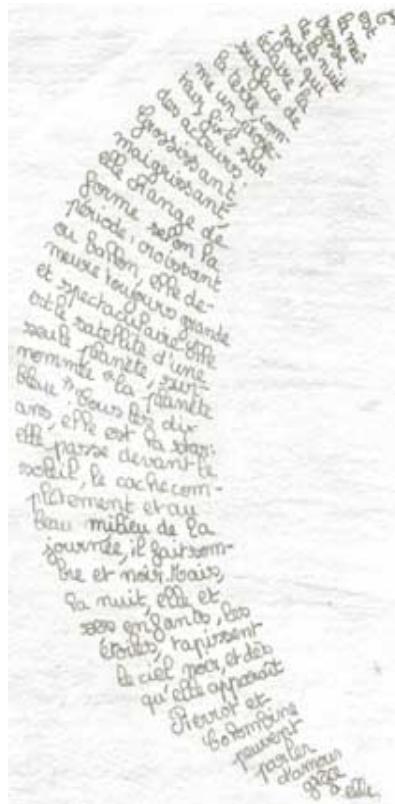 est
la maî
tresse
de la nuit
éclaire la
surface de
la terre com-
me un proje-
teur fixé sur
des acteurs.
Grossissant,
maigrissant,
elle change de
forme selon la
période, croissant
ou ballon, elle de-
meure toujours grande
et spectaculaire. Elle
est le satellite d'une
seule planète, sur-
nommée "la planète
bleu". Tous les dix
ans, elle est la star:
elle passe devant le
soleil, le cache com-
plètement et au
beau milieu de la
journée, il fait som-
bre et noir. Mais,
la nuit, elle et
ses enfants, les
étoiles, tapissent
le ciel noir, et dès
qu'elle apparaît
Pierrot et
Colombine
peuvent
parler
d'amour
grâce
elle.